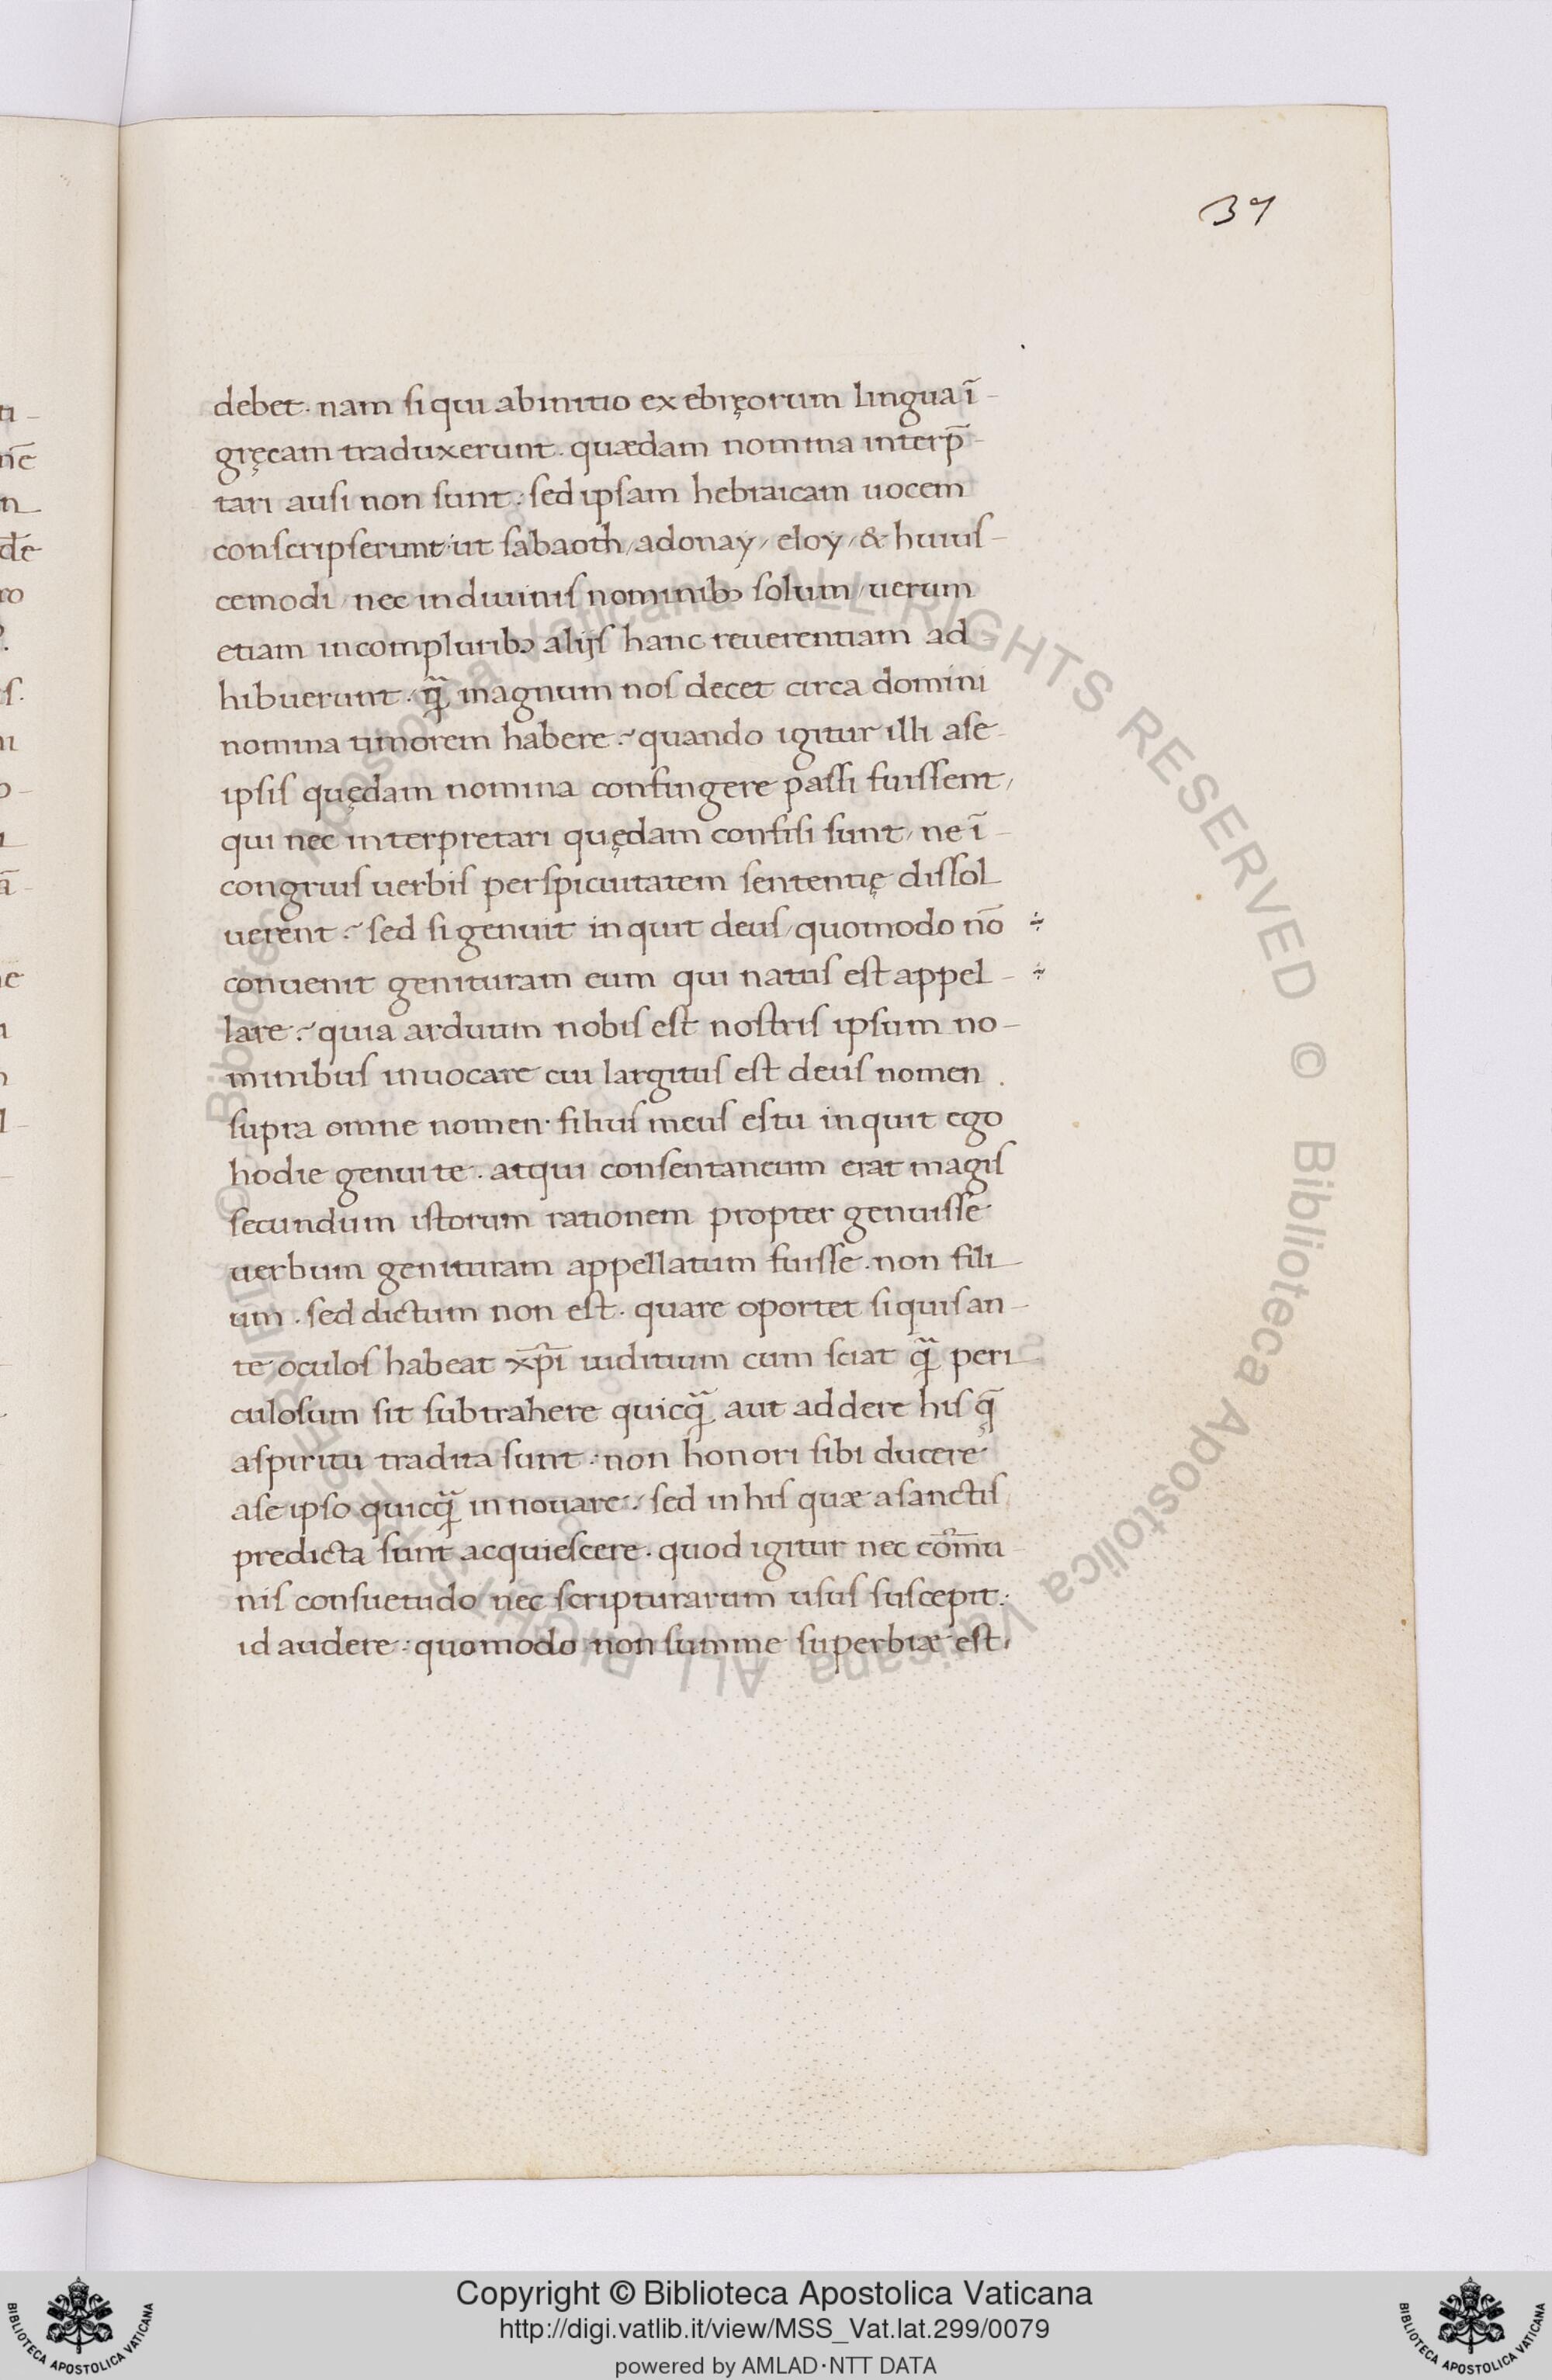 37
debet. nam si qui ab initio ex ebręorum lingua ī-
gręcam traduxerunt. quædam nomina interp̄-
tari ausi non sunt: sed ipsam hebraicam uocem
conscripserunt/ ut sabaoth/ adonay/ eloy/ & huius-
cemodi/ nec in diuinis nominibꝫ solum/ uerum
etiam in compluribꝫ alijs hanc reuerentiam ad
hibuerunt. q̄ magnum nos decet circa domini
nomina timorem habere? quando igitur illi a se-
ipsis quędam nomina confingere passi fuissent/
qui nec interpretari quędam confisi sunt/ ne ī-
congruis uerbis perspicuitatem sententię dissol
uerent? sed si genuit inquit deus/ quomodo nō ÷
conuenit genituram eum qui natus est appel- ÷
lare? quia arduum nobis est nostris ipsum no-
minibus inuocare cui largitus est deus nomen
supra omne nomen. filius meus es tu inquit ego
hodie genui te. atqui consentaneum erat magis
secundum istorum rationem propter genuisse
uerbum genituram appellatum fuisse. non fili
um. sed dictum non est. quare oportet si quis an-
te oculos habeat xp̄i iuditium cum sciat q̄ peri
culosum sit subtrahere quicq̄ aut addere his q̄
a spiritu tradita sunt: non honori sibi ducere
a se ipso quicq̄ innouare: sed in his quæ a sanctis
predicta sunt acquiescere. quod igitur nec cōmu
nis consuetudo nec scripturarum usus suscepit:
id audere: quomodo non summe superbiæ est/
Copyright © Biblioteca Apostolica Vaticana
http://digi.vatlib.it/view/MSS_Vat.lat.299/0079
powered by AMLAD·NTT DATA
BIBLIOTECA APOSTOLICA VATICANA
BIBLIOTECA APOSTOLICA VATICANA
© Biblioteca Apostolica Vaticana ALL RIGHTS RESERVED